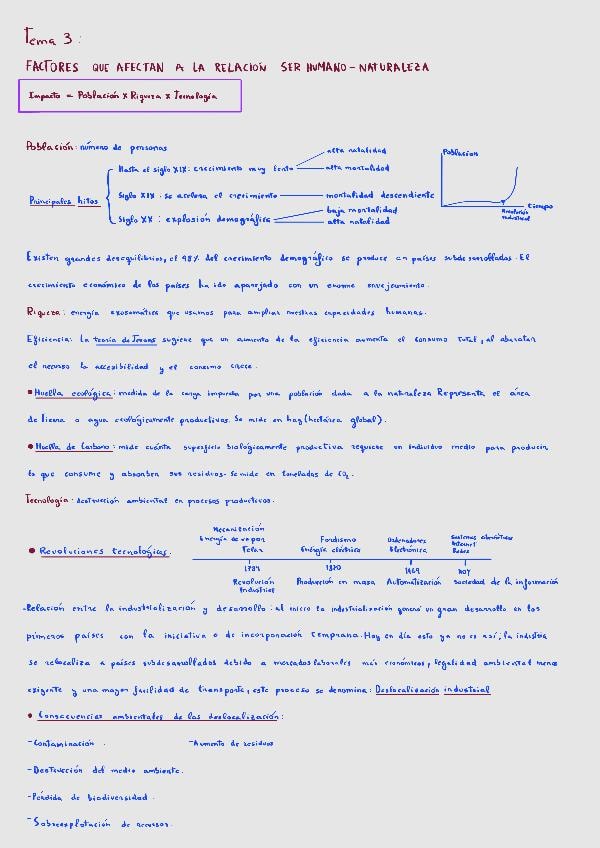 Tema 3:
FACTORES QUE AFECTAN A LA RELACIÓN SER HUMANO-NATURALEZA
Impacto = Población x Riqueza x Tecnología
Población: número de personas
Principales hitos
Hasta el siglo XIX: crecimiento muy lento
alta natalidad
alta mortalidad
Siglo XIX: se acelera el crecimiento
mortalidad descendiente
Siglo XX: explosión demográfica
baja mortalidad
alta natalidad
Población
tiempo
Revolución
industrial
Existen grandes desequilibrios, el 98% del crecimiento demográfico se produce en países subdesarrollados. El
crecimiento económico de los países ha ido aparejado con un enorme envejecimiento.
Riqueza: energía exosomática que usamos para ampliar nuestras capacidades humanas.
Eficiencia: La teoría de Jevons sugiere que un aumento de la eficiencia aumenta el consumo total, al abaratar
el recurso la accesibilidad y el consumo crece.
• Huella ecológica: medida de la carga impuesta por una población dada a la naturaleza. Representa el área
de tierra o agua ecológicamente productivos. Se mide en hag (hectárea global).
• Huella de Carbono: mide cuánta superficie biológicamente productiva requiere un individuo medio para producir
lo que consume y absorber sus residuos. Se mide en toneladas de CO2.
Tecnología: destrucción ambiental en procesos productivos.
• Revoluciones tecnológicas.
Mecanización
Energía de vapor
Telar
1784
Revolución
Industrial
Fordismo
Energía eléctrica
1870
Producción en masa
Ordenadores
Electrónica
1969
Automatización
Sistemas cibernéticos
Internet
Redes
HOY
Sociedad de la información
-Relación entre la industrialización y desarrollo: al inicio la industrialización generó un gran desarrollo en los
primeros países con la iniciativa o de incorporación temprana. Hoy en día esto ya no es así, la industria
se relocaliza a países subdesarrollados debido a mercados laborales más económicos, legalidad ambiental menos
exigente y una mayor facilidad de transporte, este proceso se denomina: Deslocalización industrial
• Consecuencias ambientales de las deslocalización:
-Contaminación.
-Aumento de residuos
-Destrucción del medio ambiente.
-Pérdida de biodiversidad.
-Sobreexplotación de recursos.